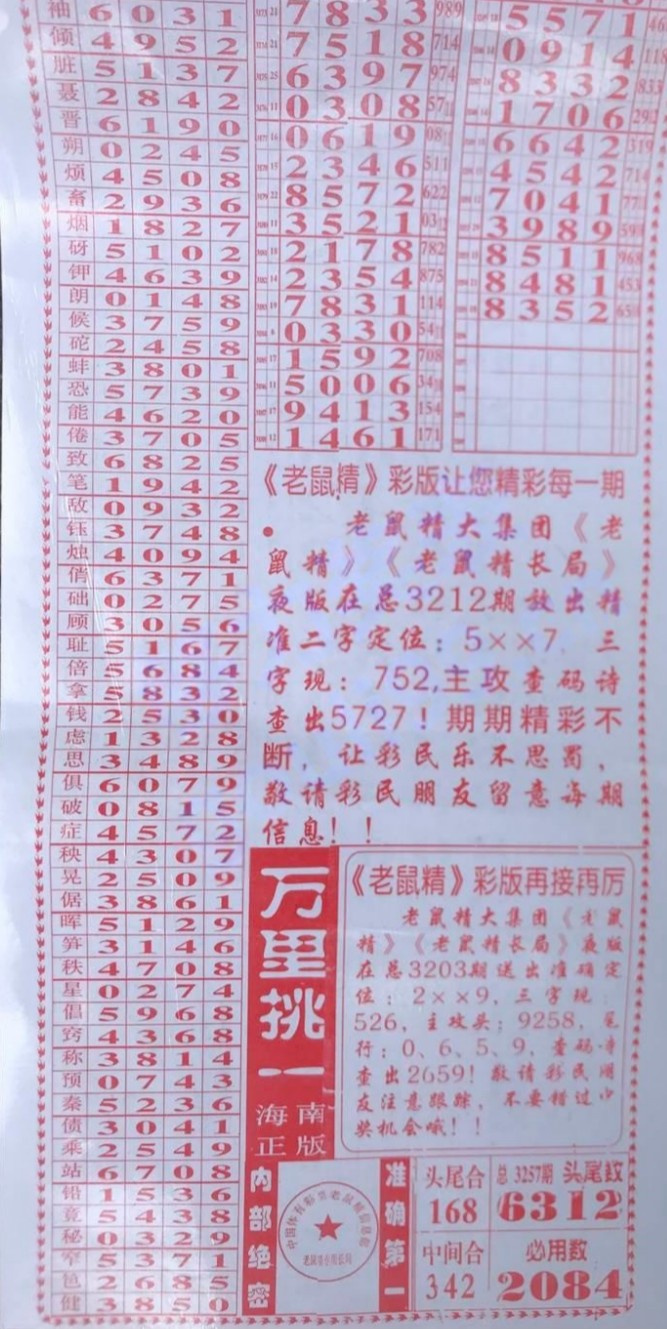 袖 6 0 3 1
倾 4 9 5 2
脏 5 1 3 7
聂 2 8 4 2
晋 6 1 9 0
朔 0 2 4 5
烦 4 5 0 8
畜 2 9 3 6
烟 1 8 2 7
砑 5 1 0 2
钾 4 6 3 9
朗 0 1 4 8
候 3 7 5 9
砣 2 4 5 8
蚌 3 8 0 1
恐 5 7 3 9
能 4 6 2 0
倦 3 7 0 5
致 6 8 2 5
笔 1 9 4 2
敌 0 9 3 2
钰 3 7 4 8
烛 4 0 9 4
俏 6 3 7 1
础 0 2 7 5
顾 3 0 5 6
耻 5 1 6 7
倍 5 6 8 4
拿 5 8 3 2
钱 2 5 3 0
虑 1 3 2 8
思 3 4 8 9
俱 6 0 7 9
破 0 8 1 5
症 4 5 7 2
秧 4 3 0 7
晃 2 5 0 9
倨 3 8 6 1
晖 5 1 2 9
笋 3 1 4 6
秩 4 7 0 8
星 0 2 7 4
倡 5 9 6 8
窍 4 3 6 8
称 3 8 1 4
预 0 7 4 3
秦 5 2 3 6
债 3 0 4 1
乘 2 5 4 9
站 6 7 0 8
铅 1 5 3 6
竞 5 4 3 8
秘 0 3 2 9
窄 5 3 7 1
笆 2 6 8 5
健 3 8 5 0
7 8 3 3 989
7 5 1 8 714
6 3 9 7 974
0 3 0 8
0 6 1 9
2 3 4 6 511
8 5 7 2 622
3 5 2 1
2 1 7 8 782
2 3 5 4 875
7 8 3 1 114
0 3 3 0
1 5 9 2 708
5 0 0 6
9 4 1 3 154
1 4 6 1 171
5 5 7 1
0 9 1 4 118
8 3 3 2 833
1 7 0 6
6 6 4 2 319
4 5 4 2 714
7 0 4 1
3 9 8 9
8 5 1 1 968
8 4 8 1 453
8 3 5 2
《老鼠精》彩版让您精彩每一期
● 老鼠精大集团《老
鼠精》《老鼠精长局》
夜版在总3212期放出精
准二字定位：5××7，三
字现：752,主攻查码诗
查出5727！期期精彩不
断，让彩民乐不思蜀、
敬请彩民朋友留意每期
信息！！
万里挑一
海南
正版
《老鼠精》彩版再接再厉
老鼠精大集团《老鼠
精》《老鼠精长局》夜版
在总3203期送出准确定
位：2××9，三字现：
526，主攻头：9258，尾
行：0、6、5、9，查码诗
查出2659！敬请彩民朋
友注意跟踪，不要错过中
奖机会哦！！
内部绝密
准确第一
头尾合
168
总 3257期 头尾数
6312
中间合
342
必用数
2084